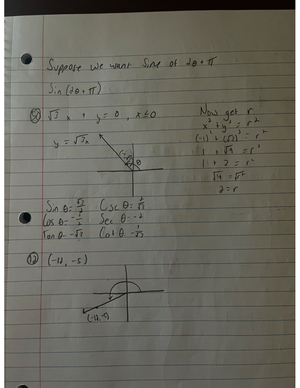 Suppose we want Sine of 2θ + π
Sin (2θ + π)
√3 x + y = 0 , x ≤ 0
Now get r
x² + y² = r²
y = √3x
(-1)² + (√3)² = r²
1 + √9 = r²
1 + 3 = r²
√4 = √r²
2 = r
θ
Sin θ = √3/2 Csc θ = 2/√3
Cos θ = -1/2 Sec θ = -2
Tan θ = -√3 Cot θ = -1/√3
(-12, -5)
(-12, -5)